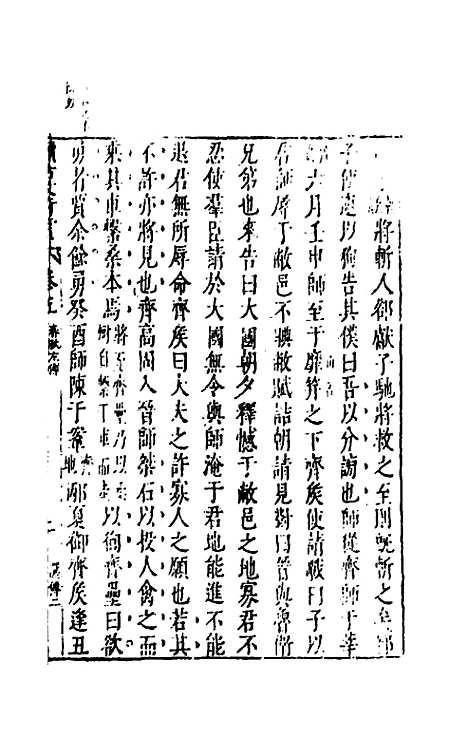 將斬人郤獻子馳將救之至則既斬之矣郤
子使速以徇告其僕曰吾以分謗也師從齊師于莘
六月壬申師至于靡笄之下齊矦使請戰曰子以
君師辱于敝邑不腆敝賦詰朝請見對曰晉與魯衛
兄弟也來告曰大國朝夕釋憾于敝邑之地寡君不
忍使羣臣請於大國無令輿師淹于君地能進不能
退君無所辱命齊矦曰大夫之許寡人之願也若其
不許亦將見也齊高固入晉師桀石以投人禽之而
乘其車繫桑本焉將至齊壘以徇齊壘曰欲
勇者賈余餘勇癸酉師陳于鞌齊地邴夏御齊矦逢丑
卷五